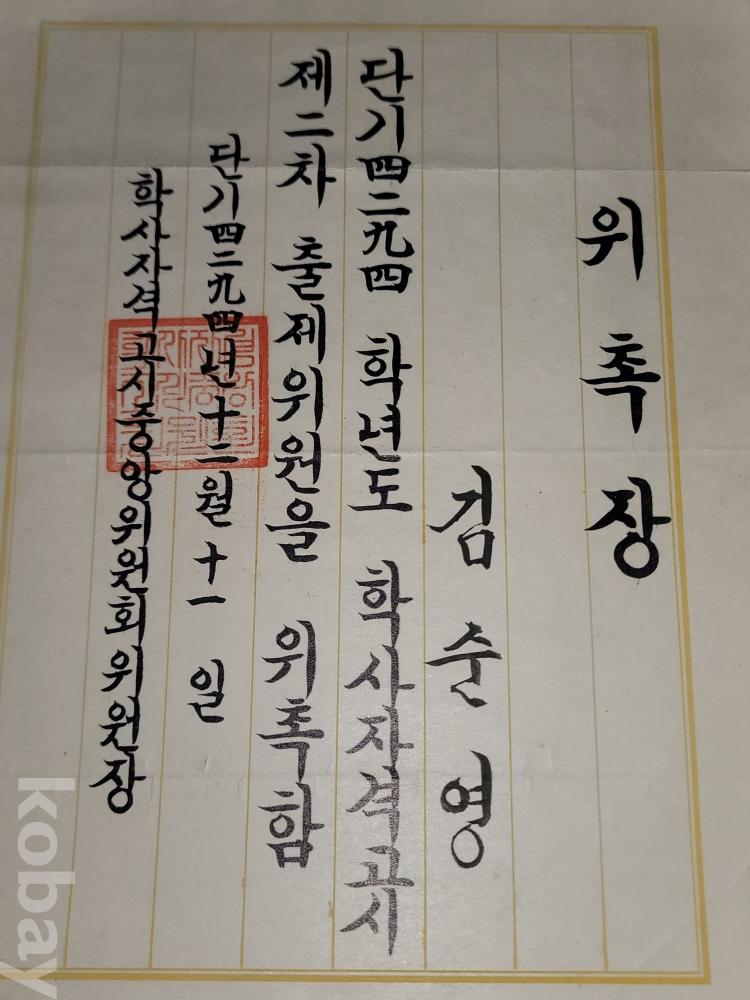 위촉장
김준영
단기四二九四 학년도 학사자격고시
제二차 출제위원을 위촉함
단기四二九四년 十二월 十一일
학사자격고시중앙위원회위원장
kobay